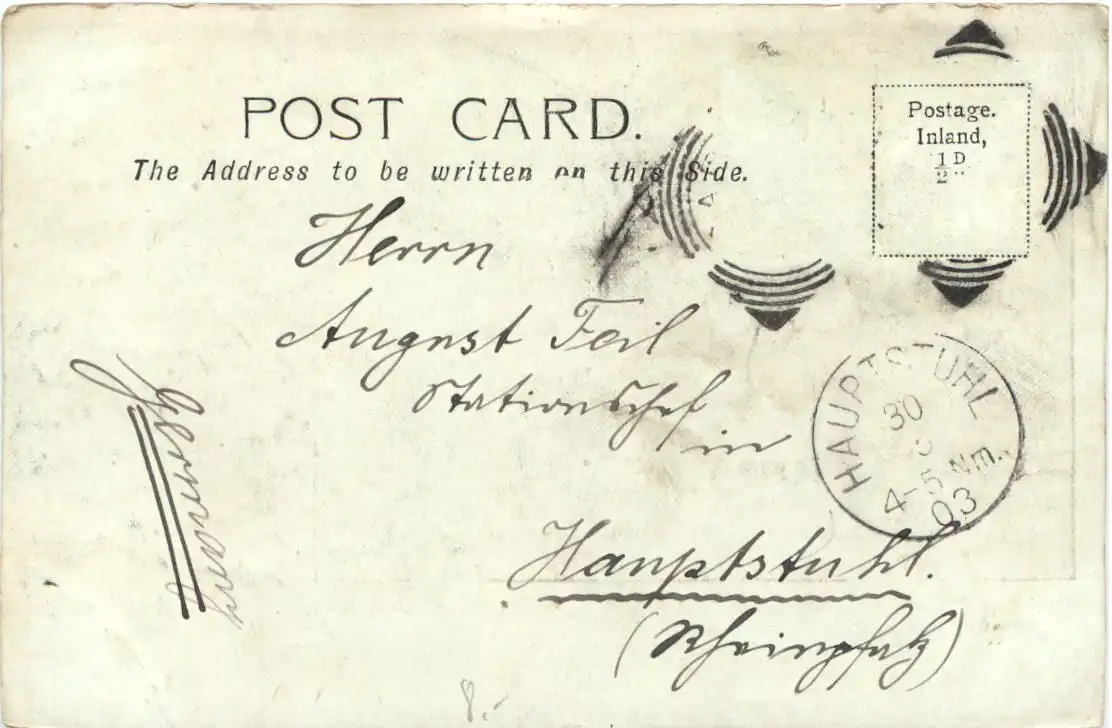 POST CARD.
The Address to be written on this Side.
Postage.
Inland,
1/2 D.
Herrn
August Feil
Stationschef
in
Hauptstuhl.
(Rheinpfalz)
Germany
HAUPTSTUHL
30
4-5 Nm.
03
8.